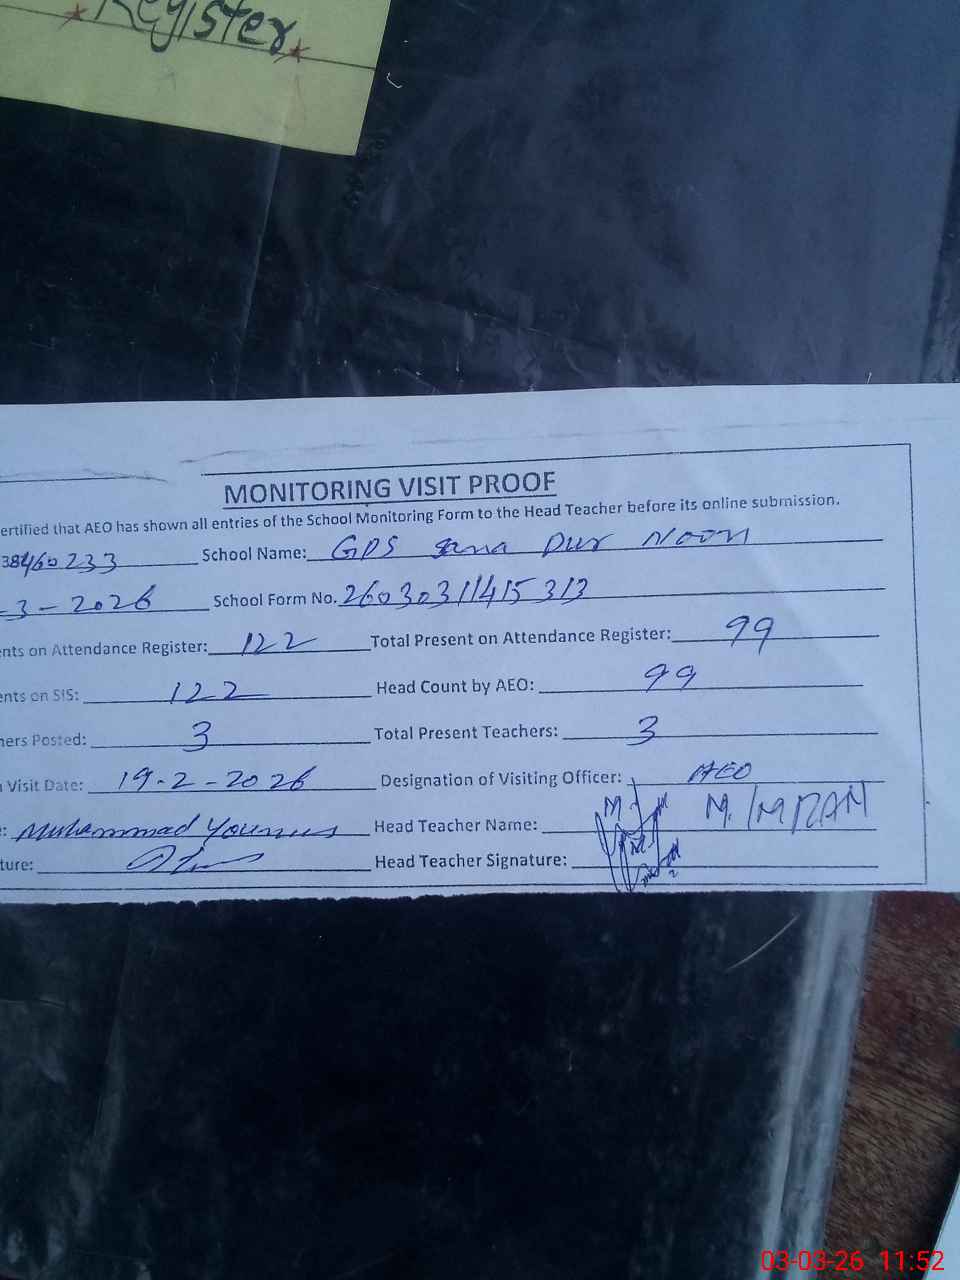 *Register*
MONITORING VISIT PROOF
ertified that AEO has shown all entries of the School Monitoring Form to the Head Teacher before its online submission.
38460233 School Name: GPS Sana Pur Noon
-3-2026 School Form No. 26030311415313
nts on Attendance Register: 122 Total Present on Attendance Register: 99
ents on SIS: 122 Head Count by AEO: 99
hers Posted: 3 Total Present Teachers: 3
Visit Date: 19-2-2026 Designation of Visiting Officer: AEO
: Muhammad Younus Head Teacher Name: M. IMRAN
ture: Head Teacher Signature:
03-03-26 11:52